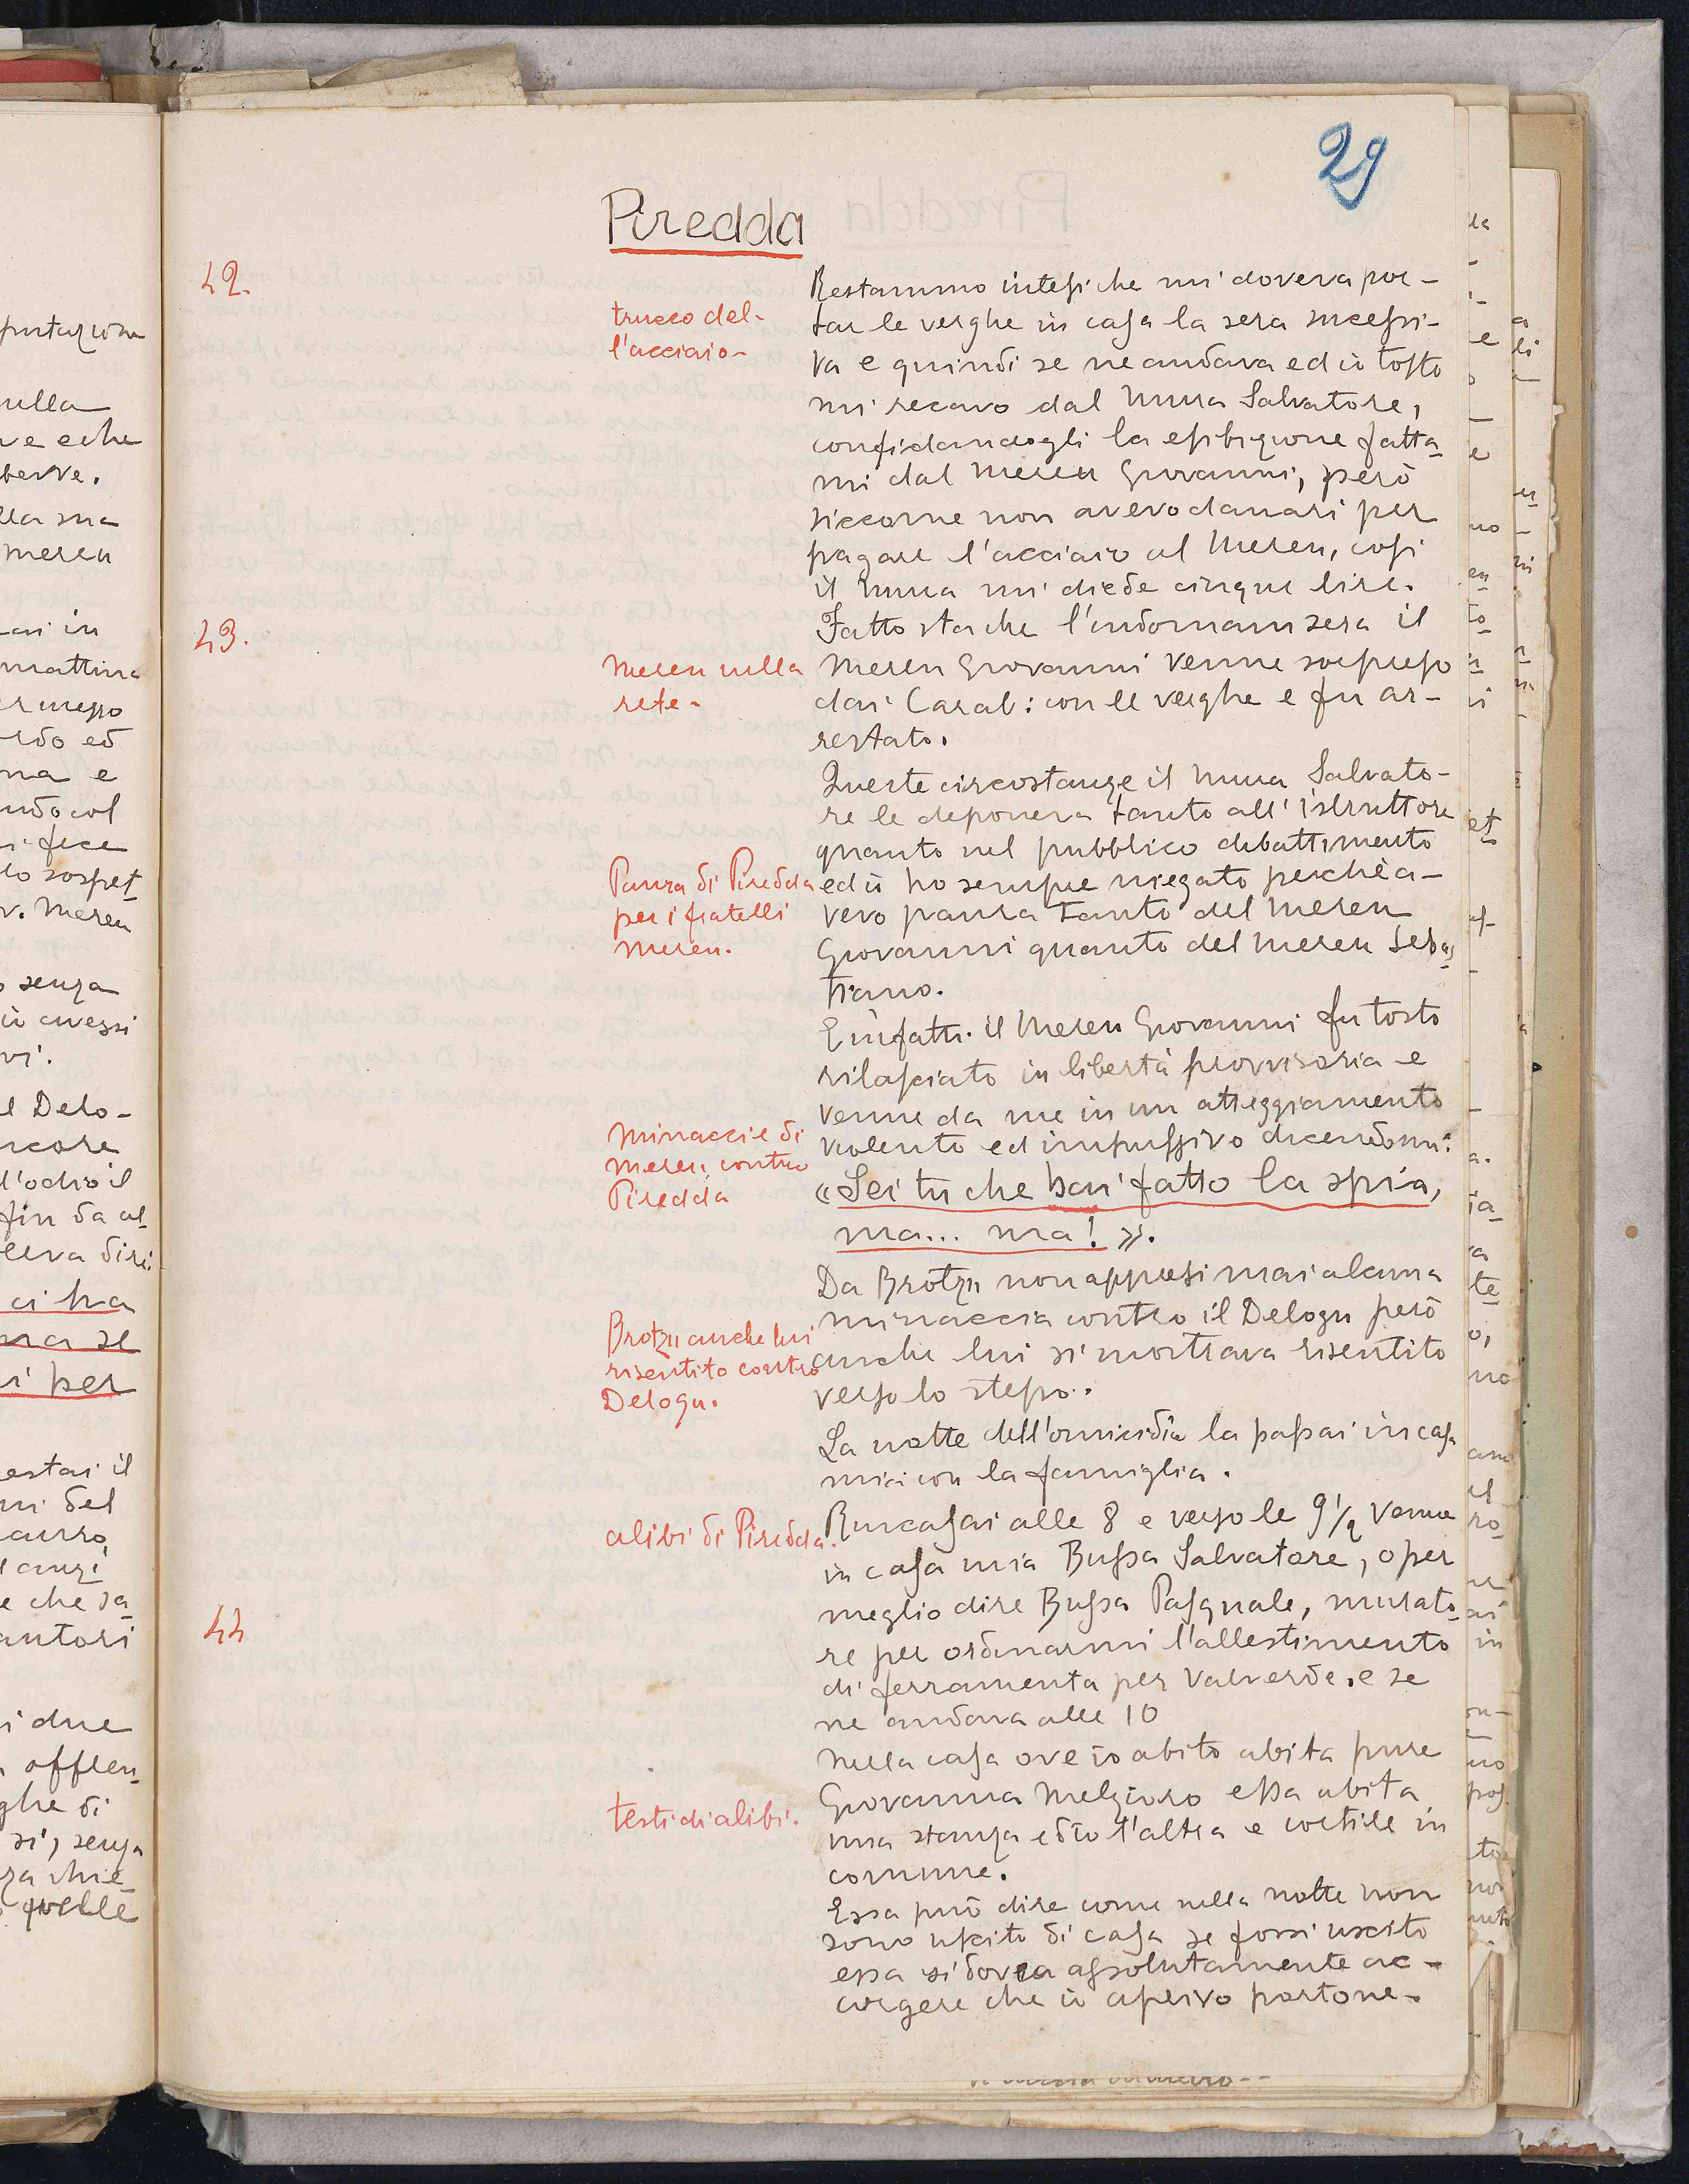 29
Piredda
42.
trucco del-
l'acciaio-
Restammo intesi che mi doveva por-
tar le verghe in casa la sera successi-
va e quindi se ne andava ed io tosto
mi recavo dal Mura Salvatore,
confidandogli la esibizione fatta-
mi dal Mereu Giovanni, però
siccome non avevo danari per
pagare l'acciaio al Mereu, così
il Mura mi diede cinque lire.
43.
Fatto sta che l'indomani sera il
Mereu nella
rete-
Mereu Giovanni venne sorpreso
dai Carab: con le verghe e fu ar-
restato.
Queste circostanze il Mura Salvato-
re le deponeva tanto all'istruttore
quanto nel pubblico dibattimento
Paura di Piredda
per i fratelli
Mereu.
ed io ho sempre niegato perchè a-
vevo paura tanto del Mereu
Giovanni quanto del Mereu Seba-
tiano.
E infatti il Mereu Giovanni fu tosto
rilasciato in libertà provvisoria e
venne da me in un atteggiamento
Minaccie di
Mereu contro
Piredda
violento ed impulsivo dicendomi:
«Sei tu che hai fatto la spia,
ma... ma! ».
Da Brotzu non appresi mai alcuna
Brotzu anche lui
risentito contro
Delogu.
minaccia contro il Delogu però
anche lui si mostrava risentito
verso lo stesso.
La notte dell'omicidio la passai in casa
mia con la famiglia.
alibi di Piredda.
Rincasai alle 8 e verso le 9 1/2 venne
in casa mia Bussa Salvatore, o per
meglio dire Bussa Pasquale, murato-
44
re per ordinarmi l'allestimento
di ferramenta per Valverde. e se
ne andava alle 10
Nella casa ove io abito abita pure
testi di alibi.
Giovanna Melzioro essa abita
una stanza ed io l'altra e cortile in
comune.
Essa può dire come nella notte non
sono uscito di casa se fossi uscito
essa si dovea assolutamente ac-
corgere che io aprivo portone-